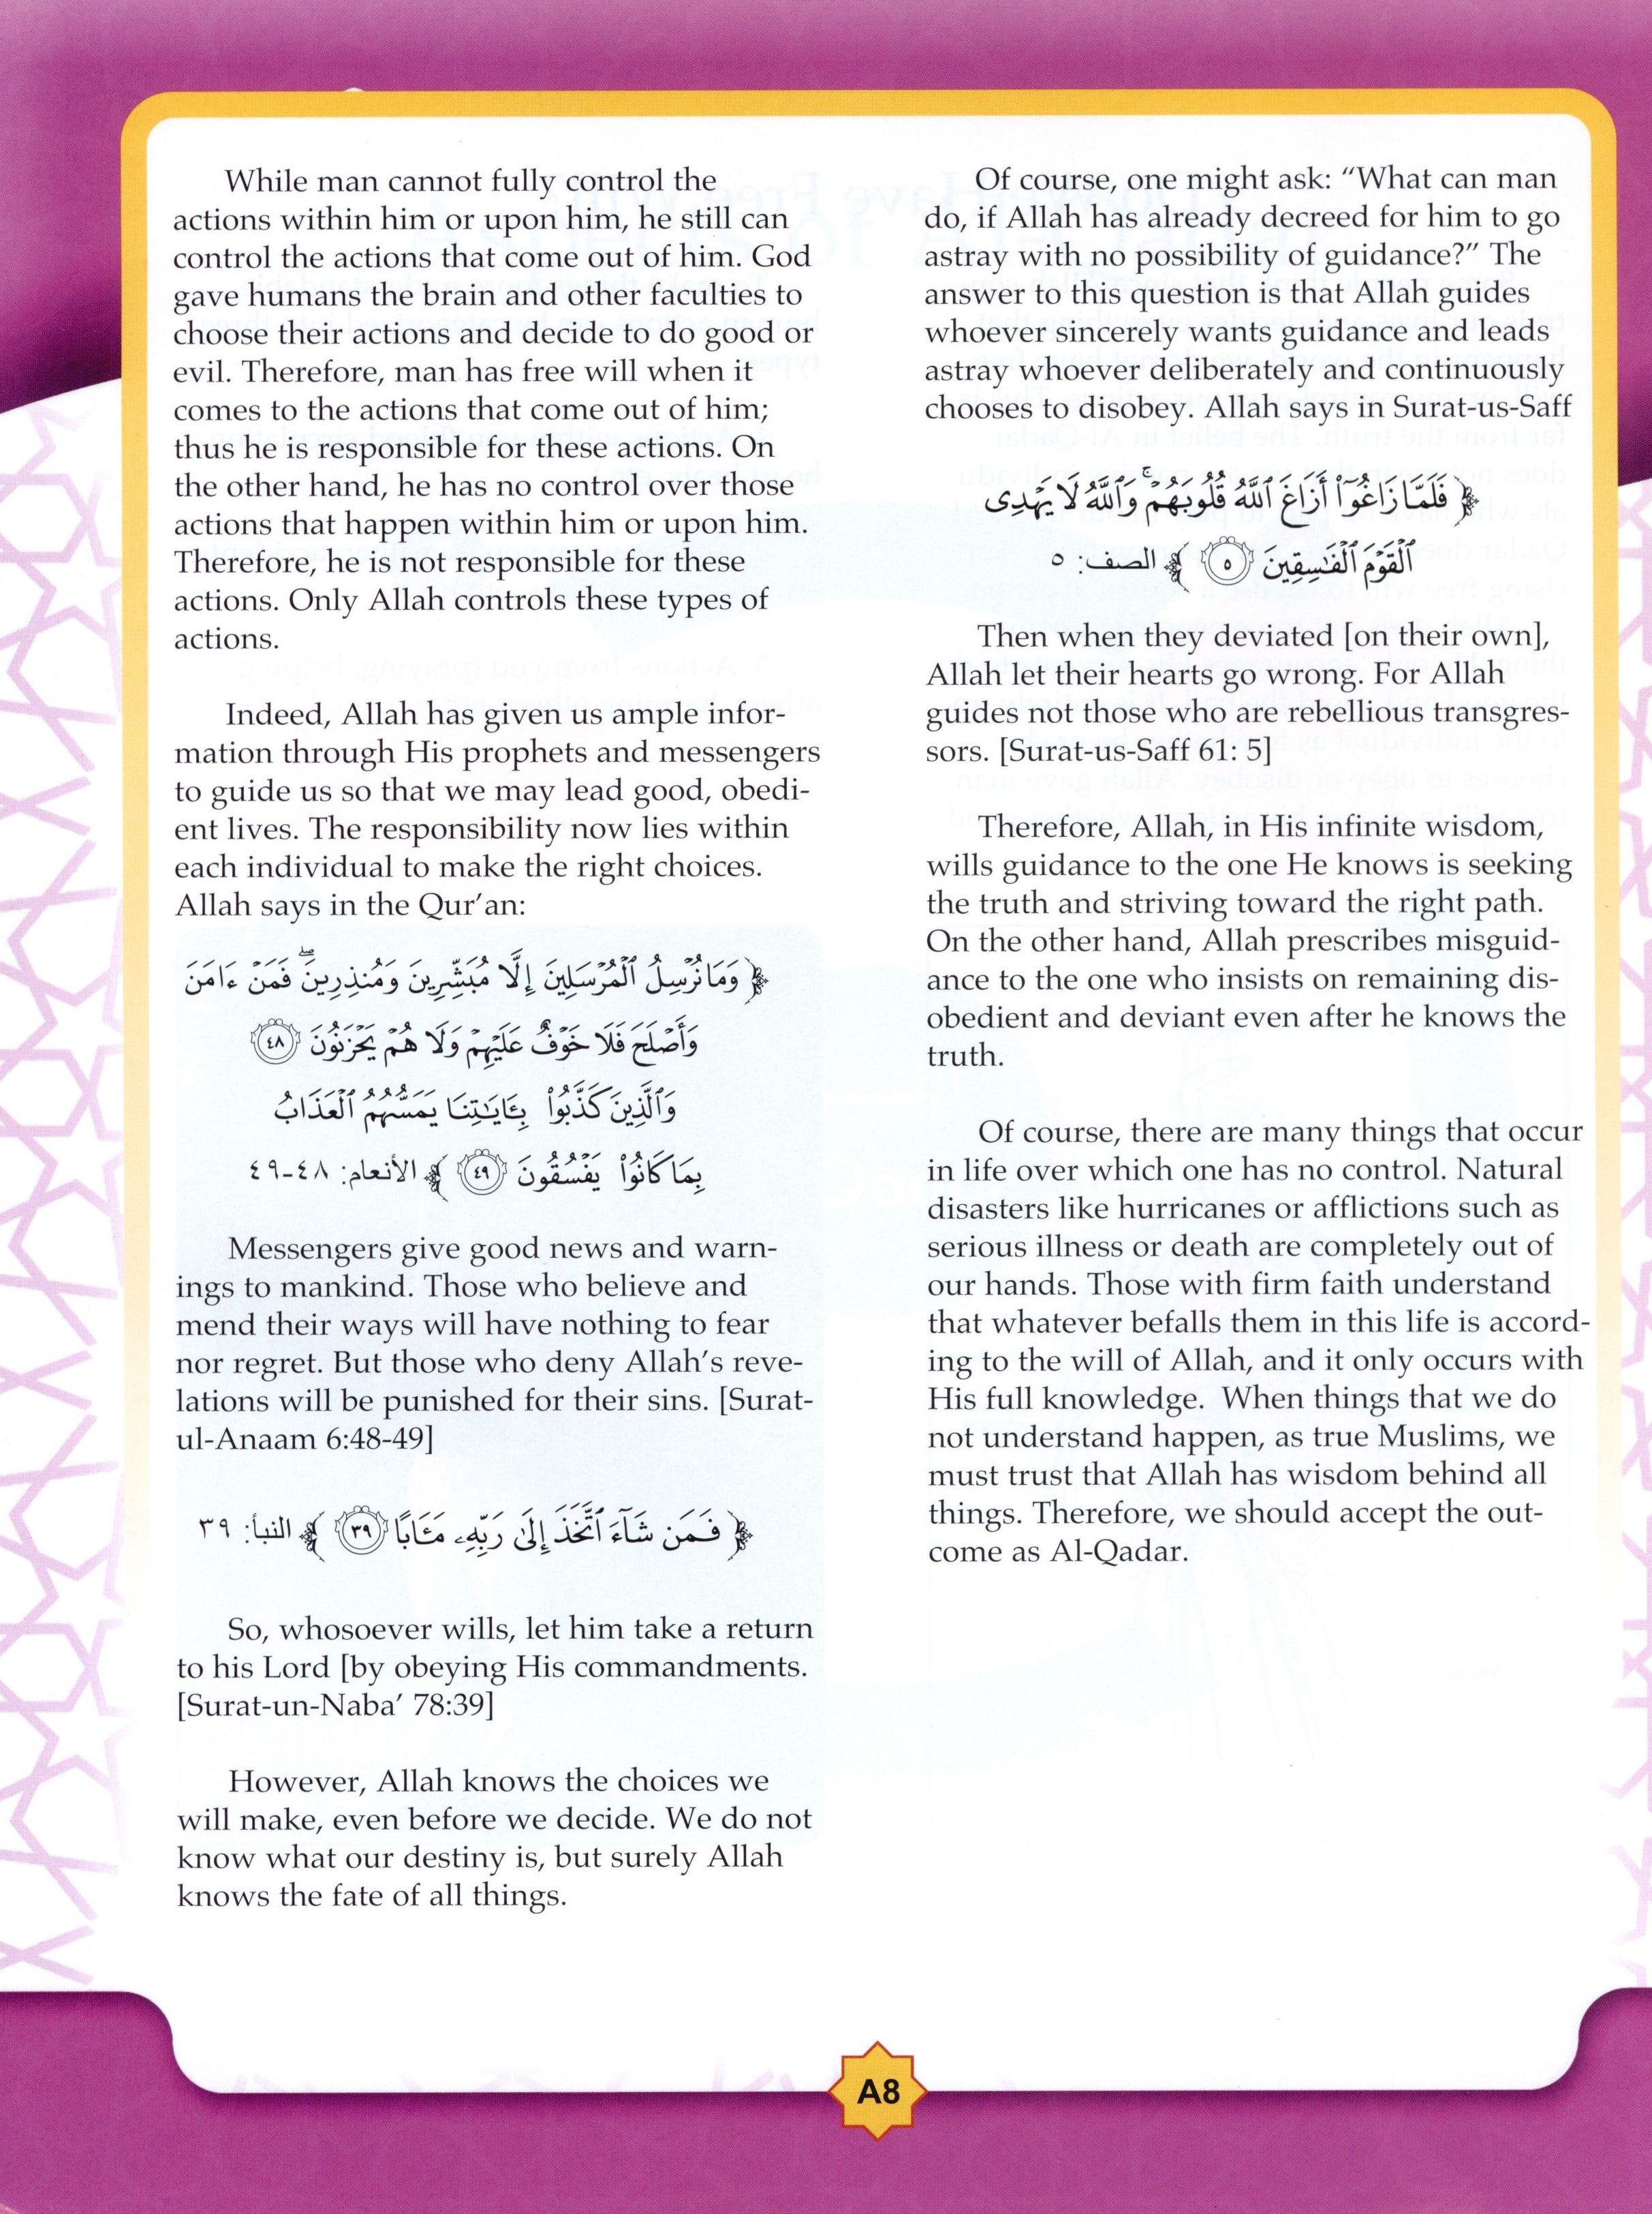 While man cannot fully control the
actions within him or upon him, he still can
control the actions that come out of him. God
gave humans the brain and other faculties to
choose their actions and decide to do good or
evil. Therefore, man has free will when it
comes to the actions that come out of him;
thus he is responsible for these actions. On
the other hand, he has no control over those
actions that happen within him or upon him.
Therefore, he is not responsible for these
actions. Only Allah controls these types of
actions.
Indeed, Allah has given us ample infor-
mation through His prophets and messengers
to guide us so that we may lead good, obedi-
ent lives. The responsibility now lies within
each individual to make the right choices.
Allah says in the Qur’an:
﴿ وَمَا نُرْسِلُ ٱلْمُرْسَلِينَ إِلَّا مُبَشِّرِينَ وَمُنذِرِينَ ۖ فَمَنْ ءَامَنَ
وَأَصْلَحَ فَلَا خَوْفٌ عَلَيْهِمْ وَلَا هُمْ يَحْزَنُونَ ٤٨
وَٱلَّذِينَ كَذَّبُوا۟ بِـَٔايَـٰتِنَا يَمَسُّهُمُ ٱلْعَذَابُ
بِمَا كَانُوا۟ يَفْسُقُونَ ٤٩ ﴾ الأنعام: ٤٨-٤٩
Messengers give good news and warn-
ings to mankind. Those who believe and
mend their ways will have nothing to fear
nor regret. But those who deny Allah’s reve-
lations will be punished for their sins. [Surat-
ul-Anaam 6:48-49]
﴿ فَمَن شَآءَ ٱتَّخَذَ إِلَىٰ رَبِّهِۦ مَـَٔابًا ٣٩ ﴾ النبأ: ٣٩
So, whosoever wills, let him take a return
to his Lord [by obeying His commandments.
[Surat-un-Naba’ 78:39]
However, Allah knows the choices we
will make, even before we decide. We do not
know what our destiny is, but surely Allah
knows the fate of all things.
Of course, one might ask: “What can man
do, if Allah has already decreed for him to go
astray with no possibility of guidance?” The
answer to this question is that Allah guides
whoever sincerely wants guidance and leads
astray whoever deliberately and continuously
chooses to disobey. Allah says in Surat-us-Saff
﴿ فَلَمَّا زَاغُوٓا۟ أَزَاغَ ٱللَّهُ قُلُوبَهُمْ ۚ وَٱللَّهُ لَا يَهْدِى
ٱلْقَوْمَ ٱلْفَـٰسِقِينَ ٥ ﴾ الصف: ٥
Then when they deviated [on their own],
Allah let their hearts go wrong. For Allah
guides not those who are rebellious transgres-
sors. [Surat-us-Saff 61: 5]
Therefore, Allah, in His infinite wisdom,
wills guidance to the one He knows is seeking
the truth and striving toward the right path.
On the other hand, Allah prescribes misguid-
ance to the one who insists on remaining dis-
obedient and deviant even after he knows the
truth.
Of course, there are many things that occur
in life over which one has no control. Natural
disasters like hurricanes or afflictions such as
serious illness or death are completely out of
our hands. Those with firm faith understand
that whatever befalls them in this life is accord-
ing to the will of Allah, and it only occurs with
His full knowledge. When things that we do
not understand happen, as true Muslims, we
must trust that Allah has wisdom behind all
things. Therefore, we should accept the out-
come as Al-Qadar.
A8